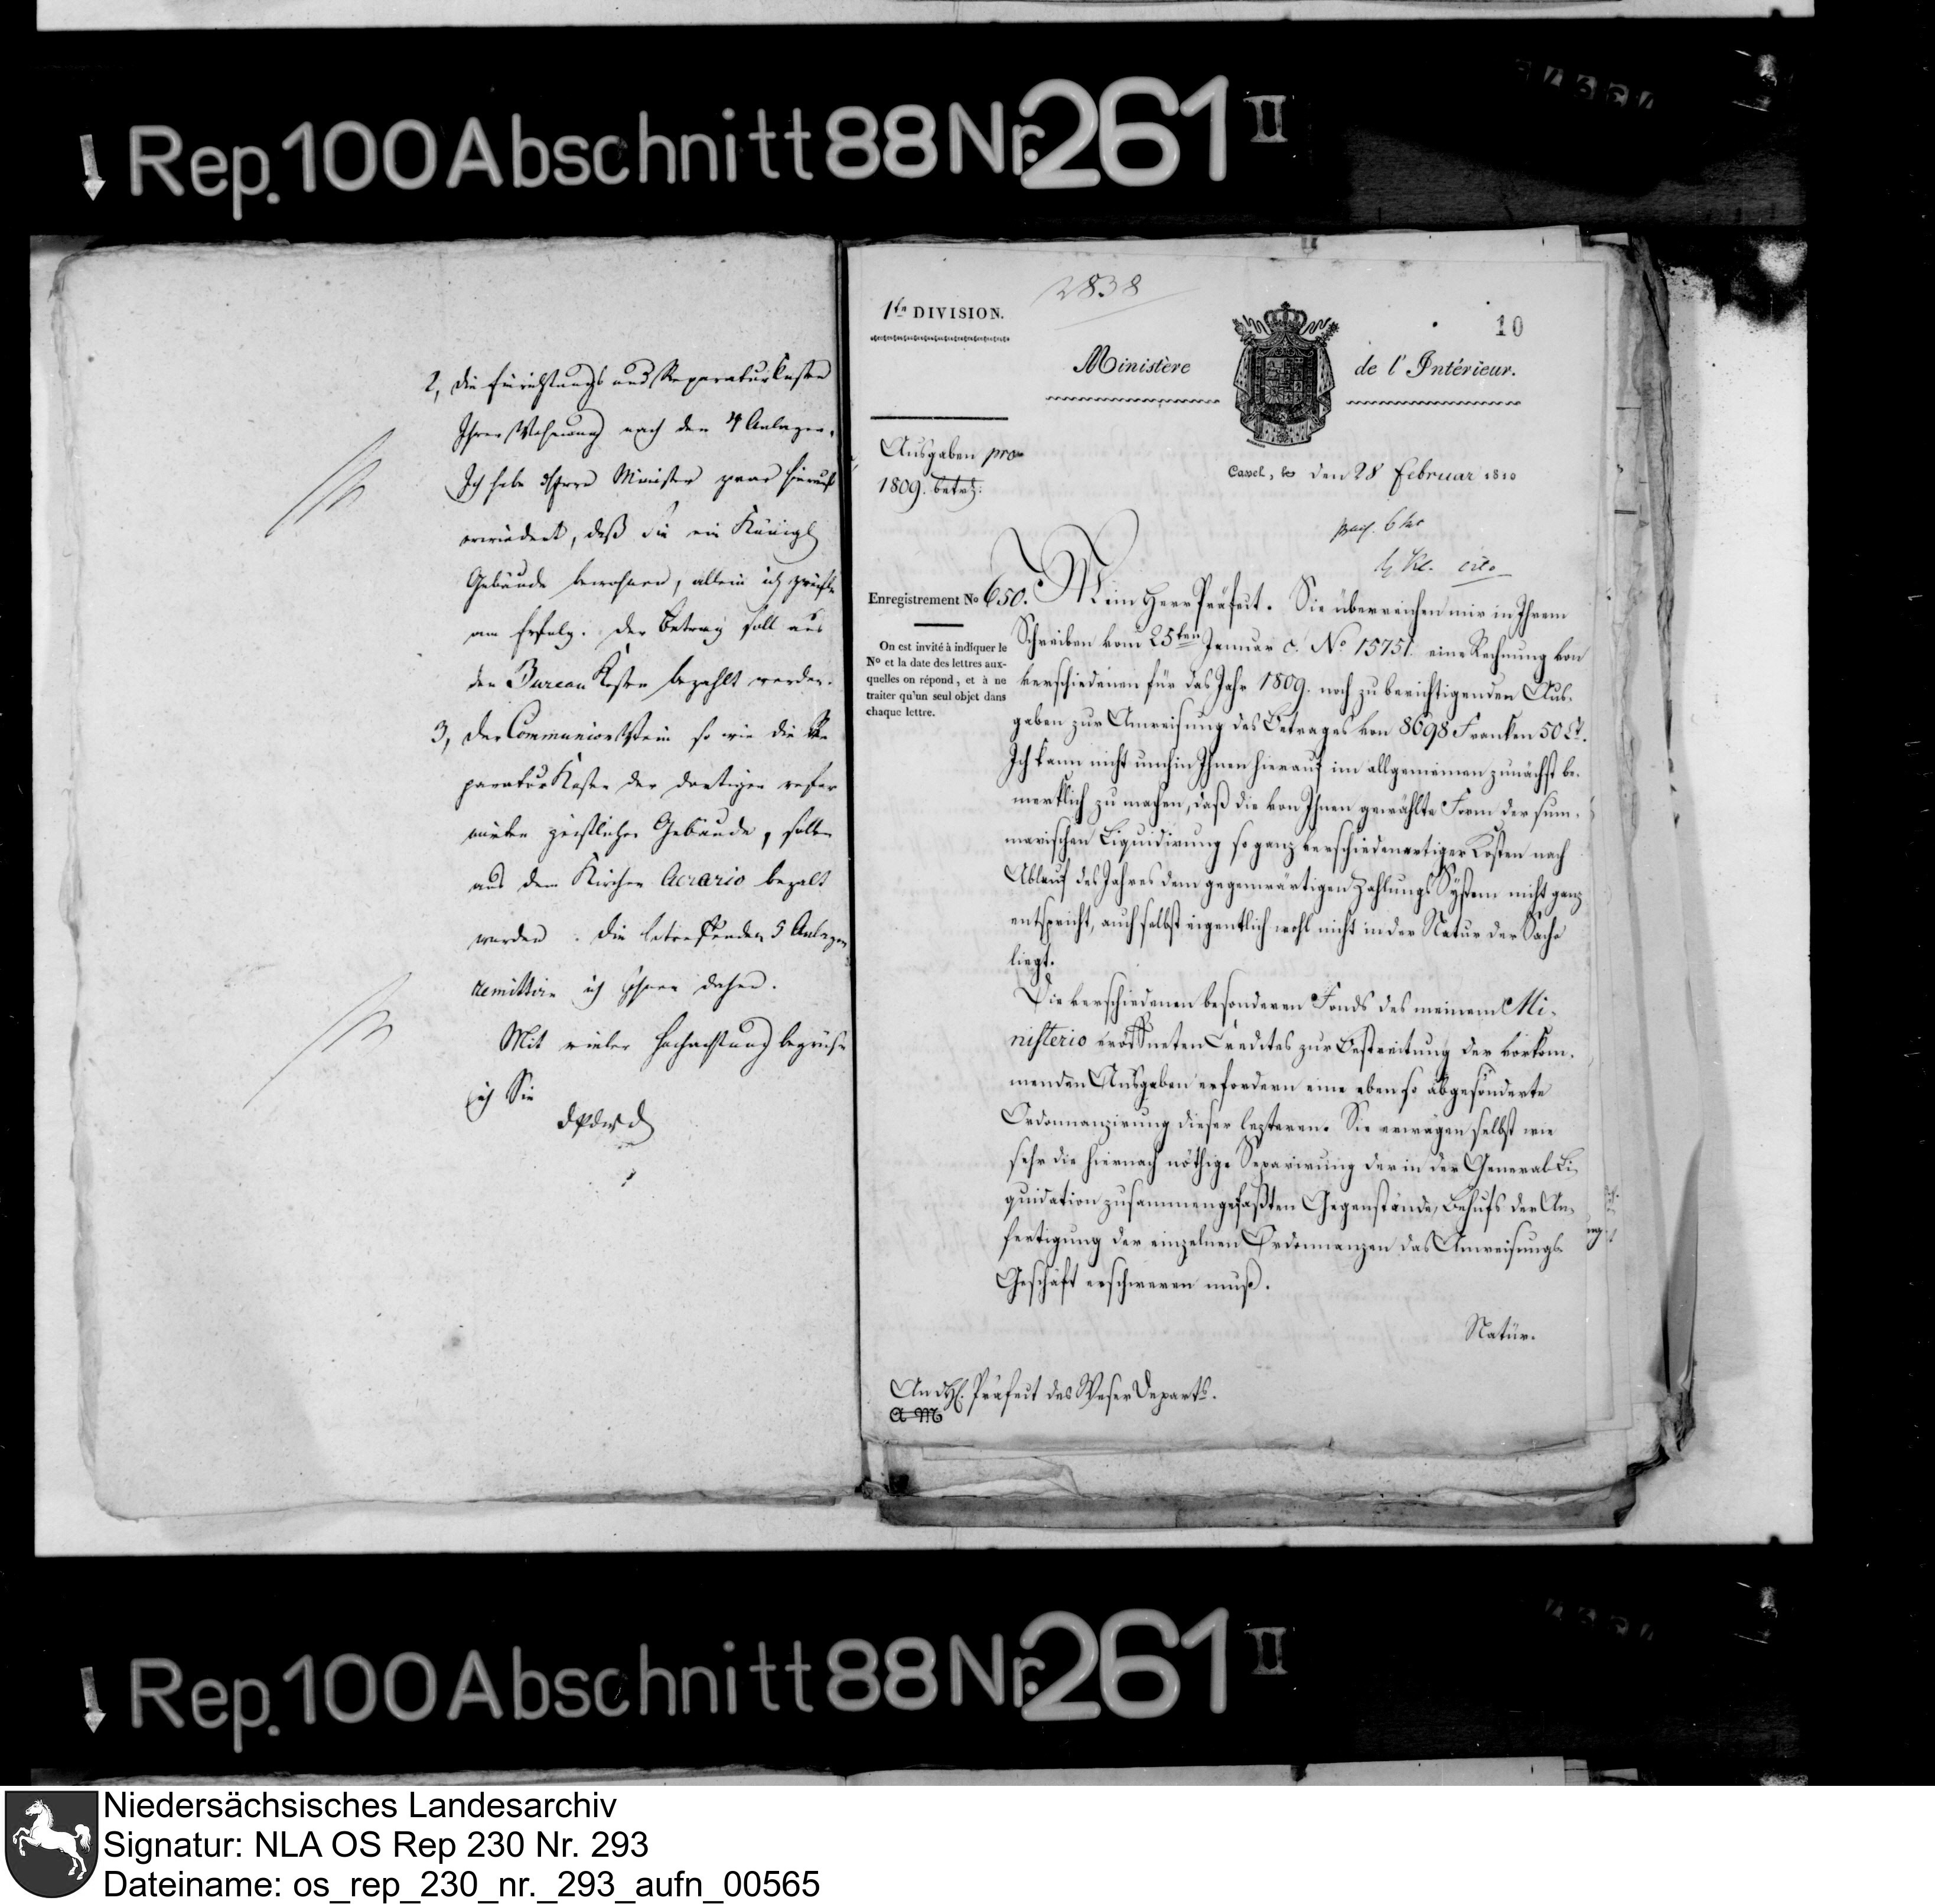 Rep. 100 Abschnitt 88 Nr. 261 II
2, die Einrichtungs und Reparatur Kosten
Ihrer Wohnung nach den 4 Anlagen.
Ich habe Minister zwar hierauf
erwiedert, daß Sie ein Königl
Gebäude bewohnen, allein ich
am Erfolg. Der Betrag soll aus
den Bureau Kosten bezahlt werden.
3, der Communion Wein so wie die Re
paratur Kosten der dortigen refor
mirten geistlichen Gebäude, sollen
aus dem Kirchen Aerario bezalt
werden. Die betreffenden 5 Anlagen
remittire ich Ihnen daher.
Mit vieler Hochachtung begrüße
ich Sie
2838
1te DIVISION.
10
Ministère de l'Intérieur.
Ausgaben pro
1809. betr:
Cassel, le den 28 Februar 1810
Enregistrement No 650.
On est invité à indiquer le
No et la date des lettres aux-
quelles on répond, et à ne
traiter qu'un seul objet dans
chaque lettre.
Mein Herr Präfect. Sie überreichen mir in Ihrem
Schreiben vom 25ten Januar c. No 15751. eine Rechnung von
verschiedenen für das Jahr 1809. noch zu berichtigenden Aus-
gaben zur Anweisung des Betrages von 8698 Franken 50 Ct.
Ich kann nicht umhin Ihnen hierauf im allgemeinen zunächst be-
merklich zu machen, daß die von Ihnen gewählte Form der sum-
marischen Liquidirung so ganz verschiedenartiger Kosten nach
Ablauf des Jahres dem gegenwärtigen Zahlungs System nicht ganz
entspricht, auch selbst eigentlich wohl nicht in der Natur der Sache
liegt.
Die verschiedenen besonderen Fonds des meinem Mi-
nisterio eröffneten Credites zur Bestreitung der vorkom-
menden Ausgaben erfordern eine eben so abgesonderte
Ordonnanzirung dieser lezteren. Sie erwägen selbst wie
sehr die hiernach nöthige Separirung der in der General Li-
quidation zusammengefaßten Gegenstände, Behufs der An-
fertigung der einzelnen Ordonnanzen das Anweisungs-
Geschäft erschweren muß.
Natür-
An H. Präfect des Weser Departs.
Rep. 100 Abschnitt 88 Nr. 261 II
Niedersächsisches Landesarchiv
Signatur: NLA OS Rep 230 Nr. 293
Dateiname: os_rep_230_nr._293_aufn_00565